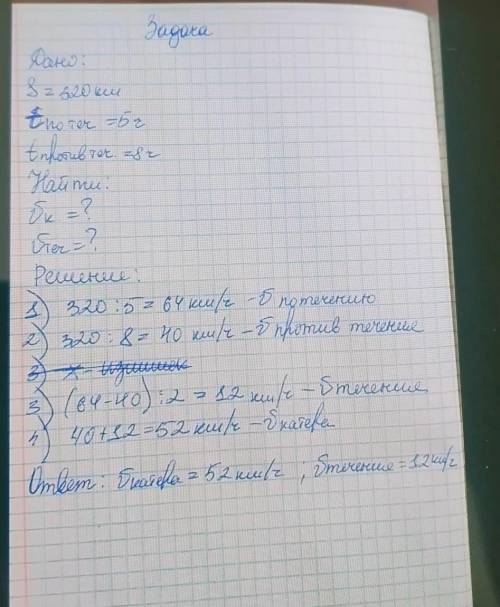 Задача
Дано:
S = 320 км
t по теч = 5 ч
t против теч. = 8 ч
Найти:
υк = ?
υтеч = ?
Решение:
1) 320 : 5 = 64 км/ч - υ по течению
2) 320 : 8 = 40 км/ч - υ против течения
3) х -
3) (64-40) : 2 = 12 км/ч - υ течения
4) 40+12 = 52 км/ч - υ катера
Ответ: υ катера = 52 км/ч ; υ течения = 12 км/ч